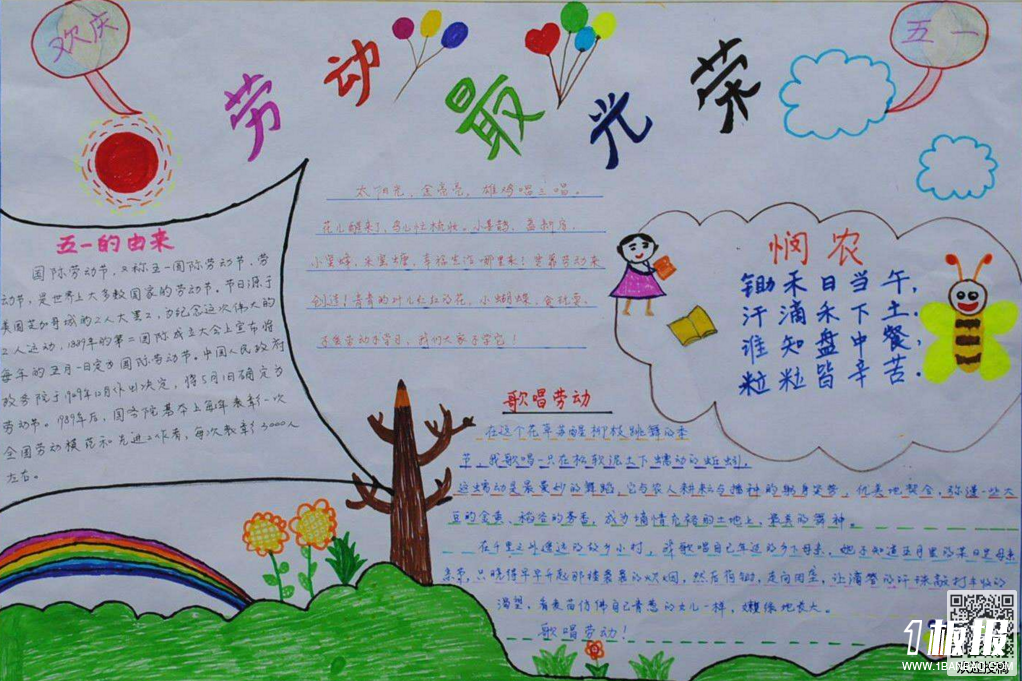 欢庆
五一
劳动最光荣
五一的由来
国际劳动节,又称五一国际劳动节、劳
动节,是世界上大多数国家的劳动节。节日源于
美国芝加哥城的工人大罢工,为纪念这次伟大的
工人运动,1889年的第二国际成立大会上宣布将
每年的五月一日定为国际劳动节。中国人民政府
政务院于1949年12月作出决定,将5月1日确定为
劳动节。1989年后,国务院基本上每5年表彰一次
全国劳动模范和先进工作者,每次表彰3000人
左右。
太阳光,金亮亮,雄鸡唱三唱。
花儿醒来了,鸟儿忙梳妆。小喜鹊,盖新房,
小蜜蜂,采蜜糖,幸福生活哪里来?要靠劳动来
创造!青青的叶儿红红的花,小蝴蝶,贪玩耍,
不爱劳动不学习,我们大家不学它!
悯农
锄禾日当午,
汗滴禾下土。
谁知盘中餐,
粒粒皆辛苦。
歌唱劳动
在这个花草苏醒柳枝跳舞的季
节,我歌唱一只在松软泥土下蠕动的蚯蚓,
这蠕动是最美妙的舞蹈,它与农人耕耘与播种的躬身姿势,优美地契合。弥漫一些大
豆的金黄、稻谷的芳香,成为墒情充裕的土地上,最美的舞神。
在千里之外遥远的故乡小村,我歌唱自己年迈的乡下母亲,她不知道五月里的某日是母亲
亲节,只晓得早早升起那缕袅袅的炊烟,然后荷锄,走向田垄,让清莹的汗珠敲打丰收的
渴望,看麦苗仿佛自己青葱的女儿一样,嫩绿地长大。
歌唱劳动!
1板报
WWW.1BANBAO.COM
欢迎投稿